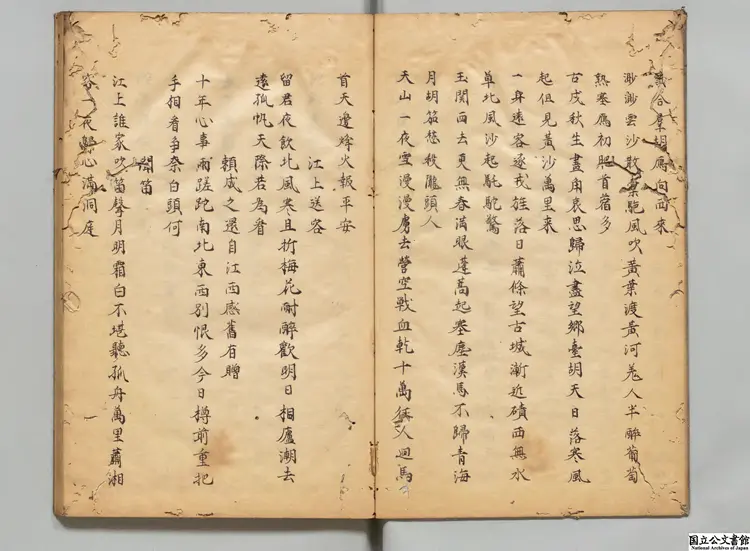 合羣胡馬向西來
渺渺雲沙散橐駞風吹黃葉渡黃河羗人半醉蒲萄
熟塞馬初肥苜蓿多
古戍秋生畫角哀思歸泣盡望鄉臺胡天日落寒風
起但見黃沙萬里來
一身遠客逐戎旌落日蕭條望古城漸近磧西無水
草北風沙起駝駝驚
玉關西去更無春滿眼蓬蒿起塞塵漢馬不歸青海
月胡笳愁殺隴頭人
天山一夜雪漫漫虜去營空戰血乾十萬人迴馬
首天邊烽火報平安
江上送客
留君夜飲北風寒且折梅花耐醉歡明日相廬湖去
遠孤帆天際若為看
賴成之還自江西感舊有贈
十年心事兩蹉跎南北東西別恨多今日樽前重把
手相看爭奈白頭何
聞笛
江上誰家吹笛聲月明霜白不堪聽孤舟萬里蕭湘
客一夜歸心滿洞庭
国立公文書館
National Archives of Japan